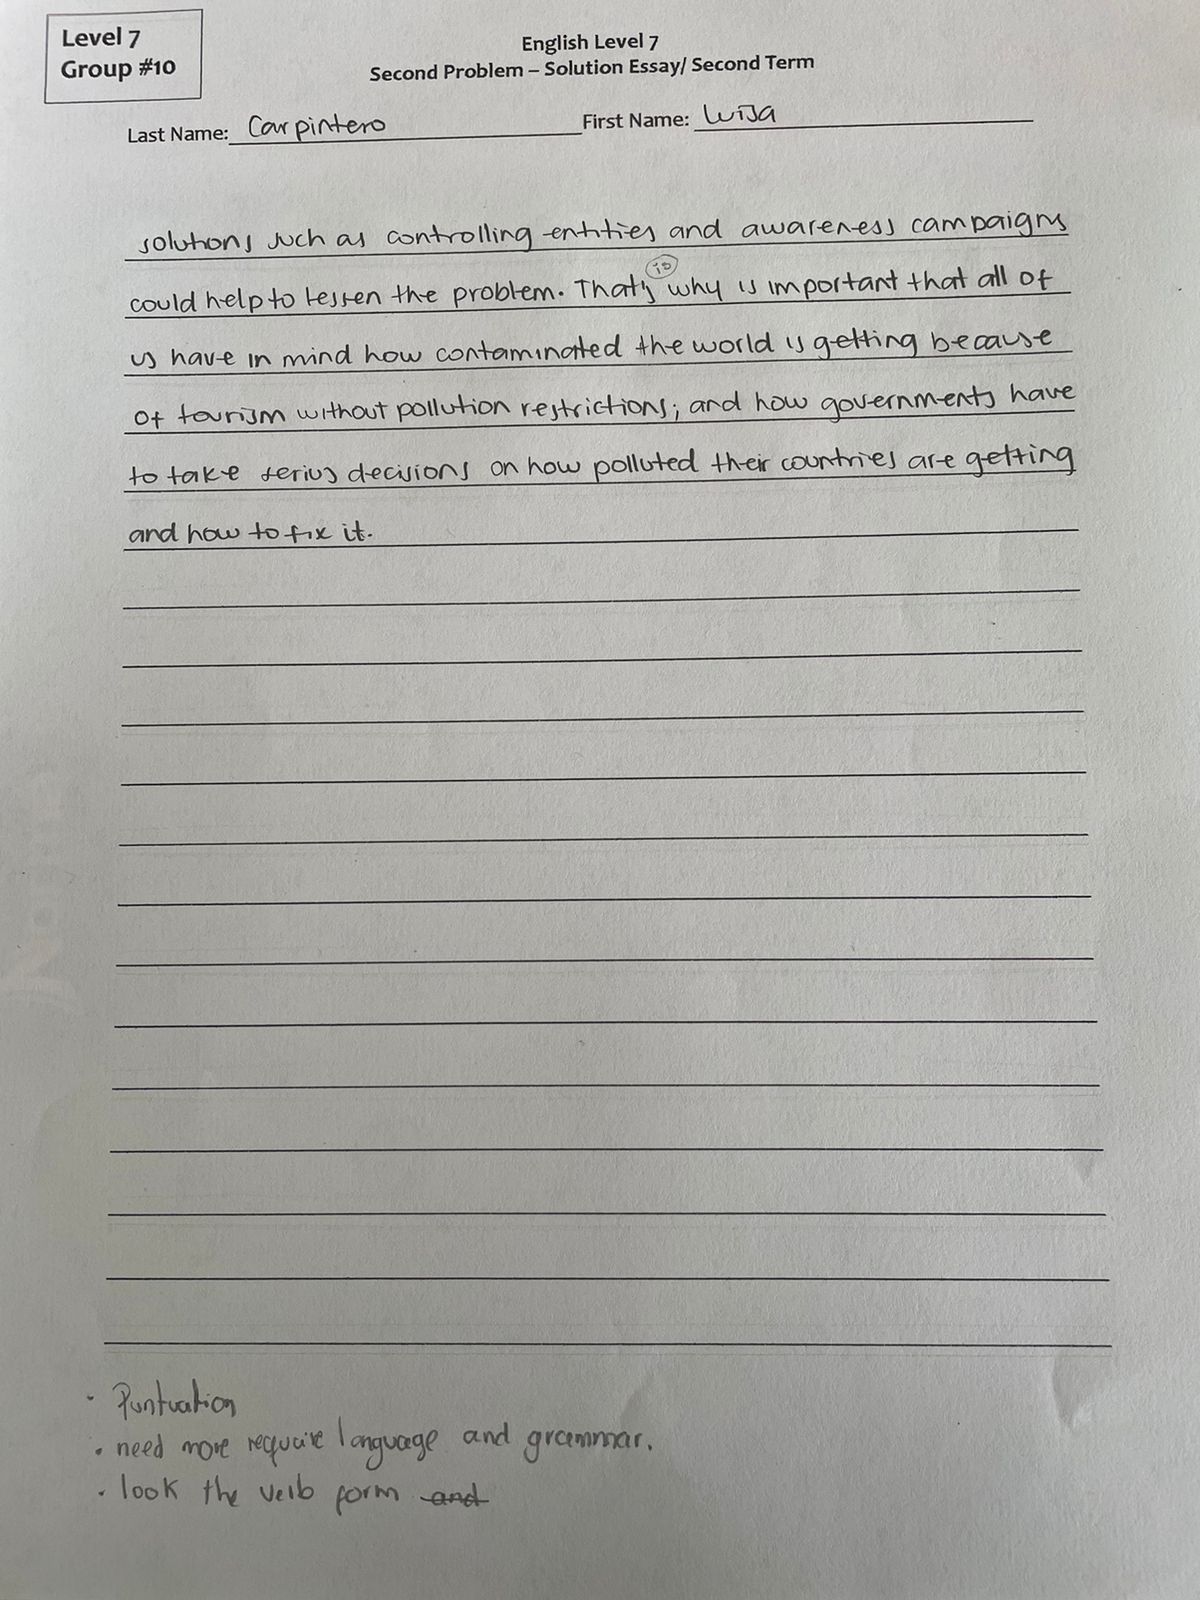 Level 7
Group #10
English Level 7
Second Problem – Solution Essay/ Second Term
Last Name: Carpintero First Name: Luisa
solutions such as controlling entities and awareness campaigns
is
could help to lessen the problem. That's why is important that all of
us have in mind how contaminated the world is getting because
of tourism without pollution restrictions; and how governments have
to take serius decisions on how polluted their countries are getting
and how to fix it.
· Puntuation
· need more requaire language and grammar.
· look the verb form and